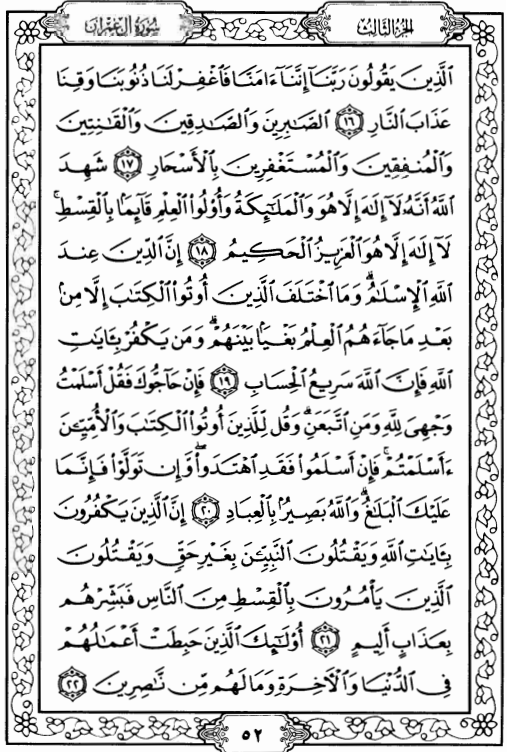 سُورَةُ آلِ عِمْرَانَ
الجُزْءُ الثَّالِثُ
ٱلَّذِينَ يَقُولُونَ رَبَّنَآ إِنَّنَآ ءَامَنَّا فَٱغْفِرْ لَنَا ذُنُوبَنَا وَقِنَا
عَذَابَ ٱلنَّارِ ١٦ ٱلصَّٰبِرِينَ وَٱلصَّٰدِقِينَ وَٱلْقَٰنِتِينَ
وَٱلْمُنفِقِينَ وَٱلْمُسْتَغْفِرِينَ بِٱلْأَسْحَارِ ١٧ شَهِدَ
ٱللَّهُ أَنَّهُۥ لَآ إِلَٰهَ إِلَّا هُوَ وَٱلْمَلَٰٓئِكَةُ وَأُو۟لُوا۟ ٱلْعِلْمِ قَآئِمًۢا بِٱلْقِسْطِ ۚ
لَآ إِلَٰهَ إِلَّا هُوَ ٱلْعَزِيزُ ٱلْحَكِيمُ ١٨ إِنَّ ٱلدِّينَ عِندَ
ٱللَّهِ ٱلْإِسْلَٰمُ ۗ وَمَا ٱخْتَلَفَ ٱلَّذِينَ أُوتُوا۟ ٱلْكِتَٰبَ إِلَّا مِنۢ
بَعْدِ مَا جَآءَهُمُ ٱلْعِلْمُ بَغْيًۢا بَيْنَهُمْ ۗ وَمَن يَكْفُرْ بِـَٔايَٰتِ
ٱللَّهِ فَإِنَّ ٱللَّهَ سَرِيعُ ٱلْحِسَابِ ١٩ فَإِنْ حَآجُّوكَ فَقُلْ أَسْلَمْتُ
وَجْهِىَ لِلَّهِ وَمَنِ ٱتَّبَعَنِ ۗ وَقُل لِّلَّذِينَ أُوتُوا۟ ٱلْكِتَٰبَ وَٱلْأُمِّيِّـۧنَ
ءَأَسْلَمْتُمْ ۚ فَإِنْ أَسْلَمُوا۟ فَقَدِ ٱهْتَدَوا۟ ۖ وَّإِن تَوَلَّوْا۟ فَإِنَّمَا
عَلَيْكَ ٱلْبَلَٰغُ ۗ وَٱللَّهُ بَصِيرٌۢ بِٱلْعِبَادِ ٢٠ إِنَّ ٱلَّذِينَ يَكْفُرُونَ
بِـَٔايَٰتِ ٱللَّهِ وَيَقْتُلُونَ ٱلنَّبِيِّـۧنَ بِغَيْرِ حَقٍّ وَيَقْتُلُونَ
ٱلَّذِينَ يَأْمُرُونَ بِٱلْقِسْطِ مِنَ ٱلنَّاسِ فَبَشِّرْهُم
بِعَذَابٍ أَلِيمٍ ٢١ أُو۟لَٰٓئِكَ ٱلَّذِينَ حَبِطَتْ أَعْمَٰلُهُمْ
فِى ٱلدُّنْيَا وَٱلْءَاخِرَةِ وَمَا لَهُم مِّن نَّٰصِرِينَ ٢٢
٥٢